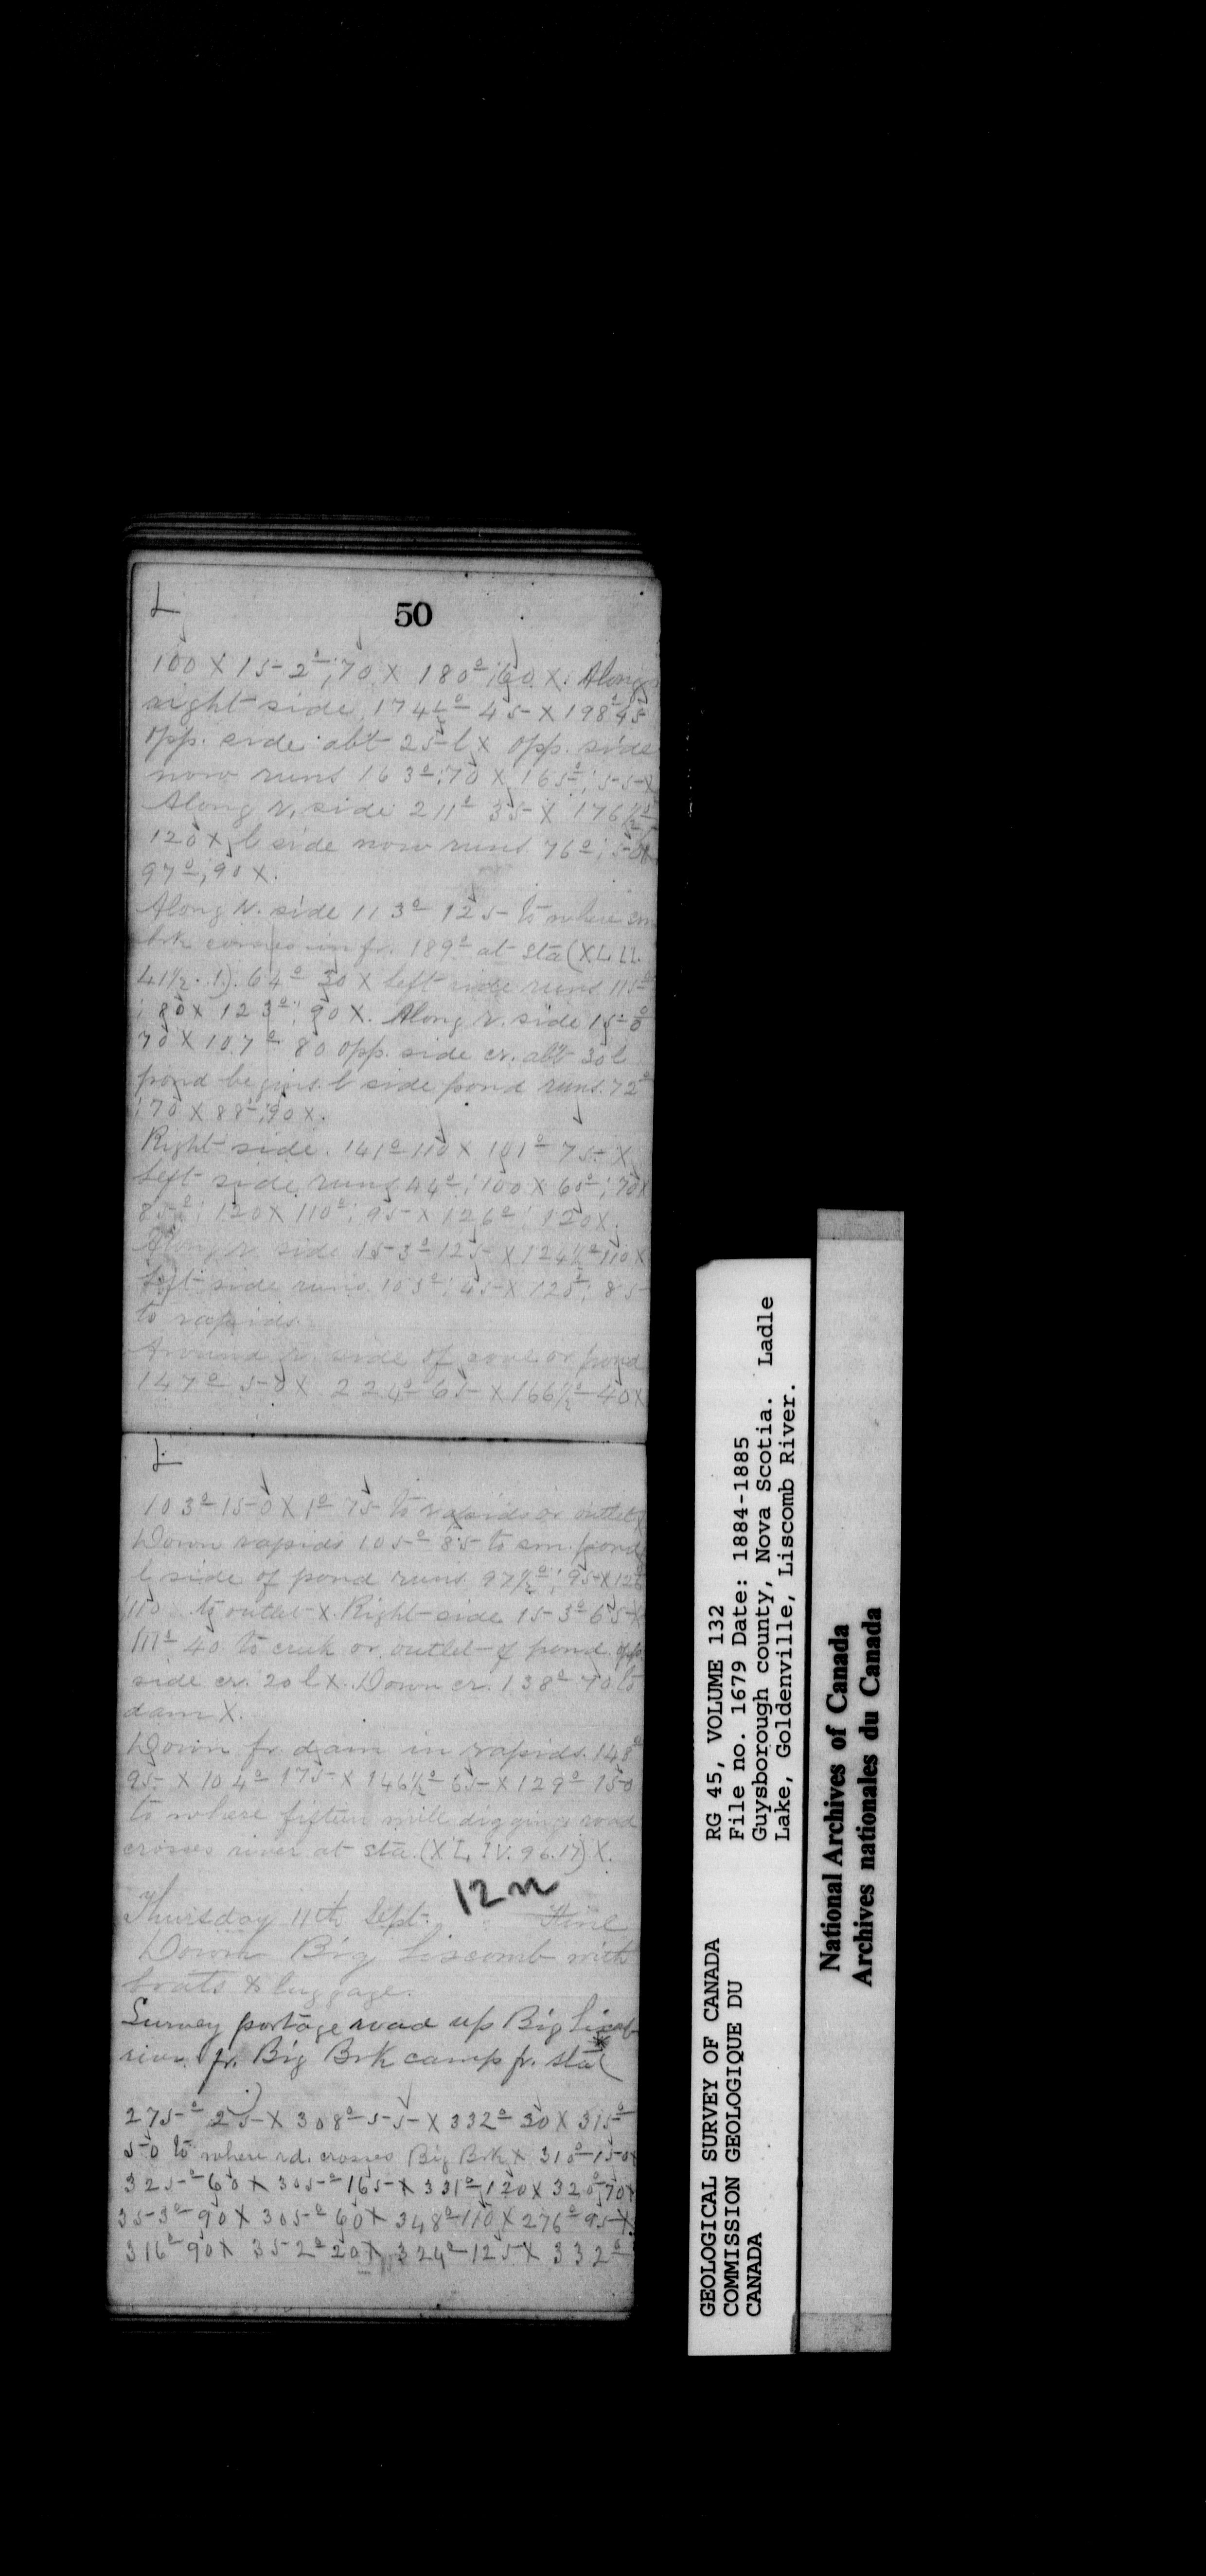 L
50
100 X 152°; 70 X 180°; 60 X. Along
right side 174½° 45 X 198° 45
opp. side abt 25 l X opp. side
now runs 163°; 70 X 165°; 55 X
Along r. side 211° 35 X 176½°
120 X l side now runs 76°; 50 X
97°; 90 X.
Along r. side 113° 125 to where sm
brk comes in fr. 189° at sta (XLII.
41½. 1). 64° 30 X left side runs 115°
; 80 X 123°; 90 X. Along r. side 150°
70 X 107° 80 opp. side cr. abt 30 l
pond begins. l side pond runs 72°
; 70 X 88°; 90 X.
Right side. 141° 110 X 101° 75 X
Left side runs 44°; 100 X 60°; 70 X
85°; 120 X 110°; 95 X 126°; 120 X.
Along r. side 153° 125 X 124½° 110 X
Left side runs 103°; 45 X 125°; 85
to rapids
Around r. side of cove or pond
147° 50 X 224° 65 X 166½° 40 X
L
103° 150 X 1° 75 to rapids or outlet X
Down rapids 105° 85 to sm. pond
l side of pond runs 97½°; 95 X 126°
110 to outlet X. Right side 153° 65 X
111° 40 to creek or outlet of pond opp
side cr. 20 l X. Down cr. 138° 70 to
dam X.
Down fr. dam in rapids. 148°
95 X 104° 175 X 146½° 65 X 129° 150
to where fifteen mile diggings road
crosses river at sta. (XLIV. 96. 17) X.
12 m
Thursday 11th Sept. Fine
Down Big Liscomb with
boats & luggage.
Survey portage road up Big Liscomb
river fr. Big Brk camp fr. sta (
)
275° 25 X 308° 55 X 332° 30 X 315°
50 to where rd. crosses Big Brk X 310° 150 X
325° 60 X 305° 165 X 331° 120 X 320° 70 X
353° 90 X 305° 60 X 348° 110 X 276° 95 X
316° 90 X 352° 20 X 324° 125 X 332°
GEOLOGICAL SURVEY OF CANADA
COMMISSION GEOLOGIQUE DU
CANADA
RG 45, VOLUME 132
File no. 1679 Date: 1884-1885
Guysborough county, Nova Scotia. Ladle
Lake, Goldenville, Liscomb River.
National Archives of Canada
Archives nationales du Canada